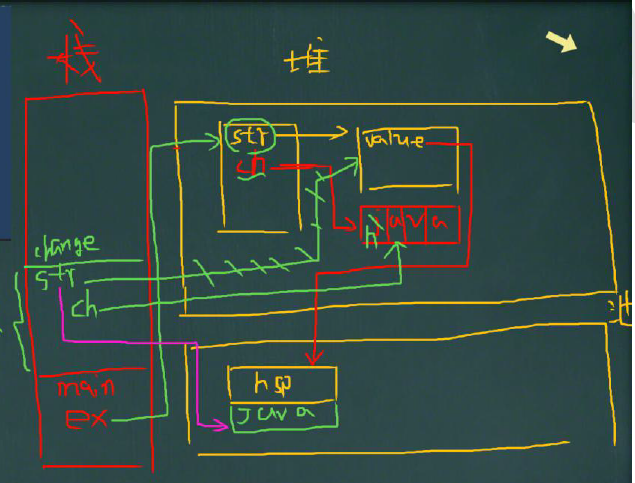 栈
堆
str
value
ch
h a v a
change
str
ch
main
ex
hsp
java